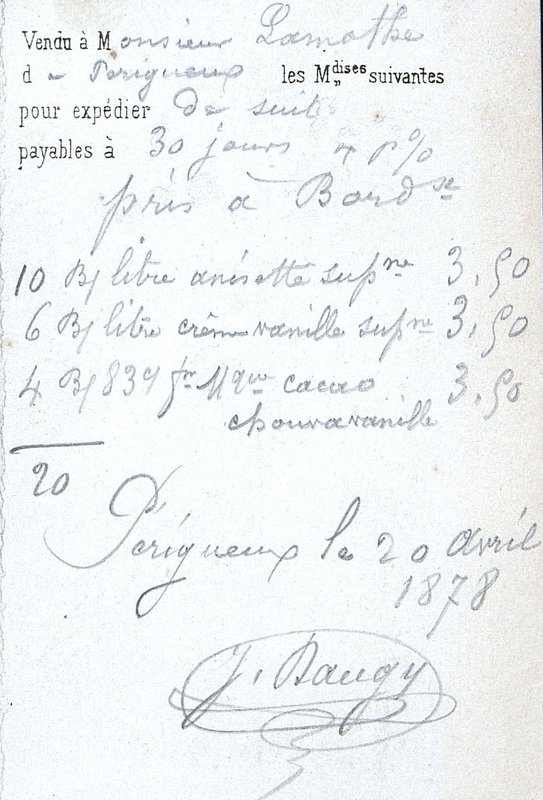 Vendu à Monsieur Lamothe
de Périgueux les Mdises suivantes
pour expédier de suite
payables à 30 jours 4 p%
pris à Bordx
10 B/ litre anisette supne 3,50
6 B/ litre crème vanille supne 3,50
4 B/ 839 fn Mque cacao 3,50
chouva vanille
20
Périgueux le 20 avril
1878
J. Baugy